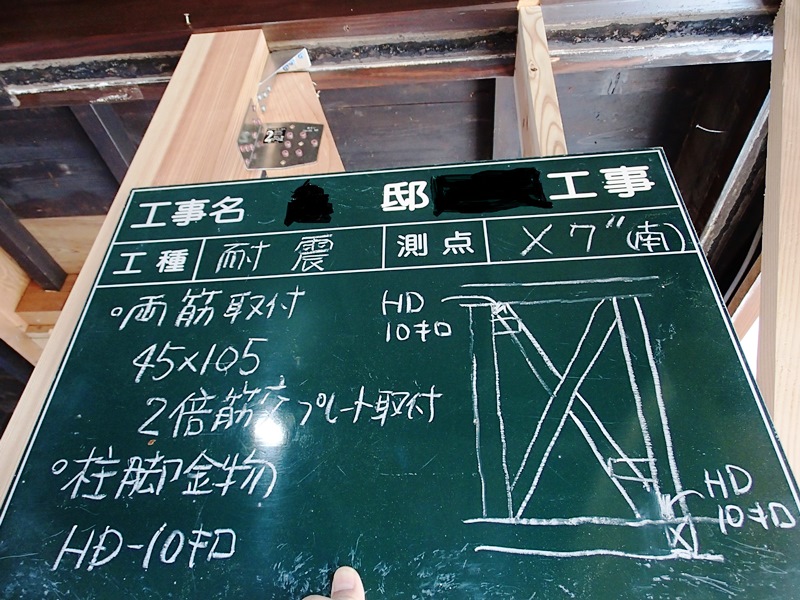 工事名 邸 工事
工種 耐震 測点 メ7"(南)
○両筋取付
45×105
2倍筋交プレート取付
○柱脚金物
HD-10キロ
HD
10キロ
HD
10キロ